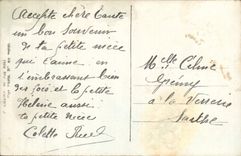 Accepte chère tante
un bon souvenir
de ta petite nièce
qui t'aime. en
t'embrassant bien
des fois et la petite
Hélène aussi
ta petite nièce
Colette
Melle Céline
à la Verrerie
Sarthe